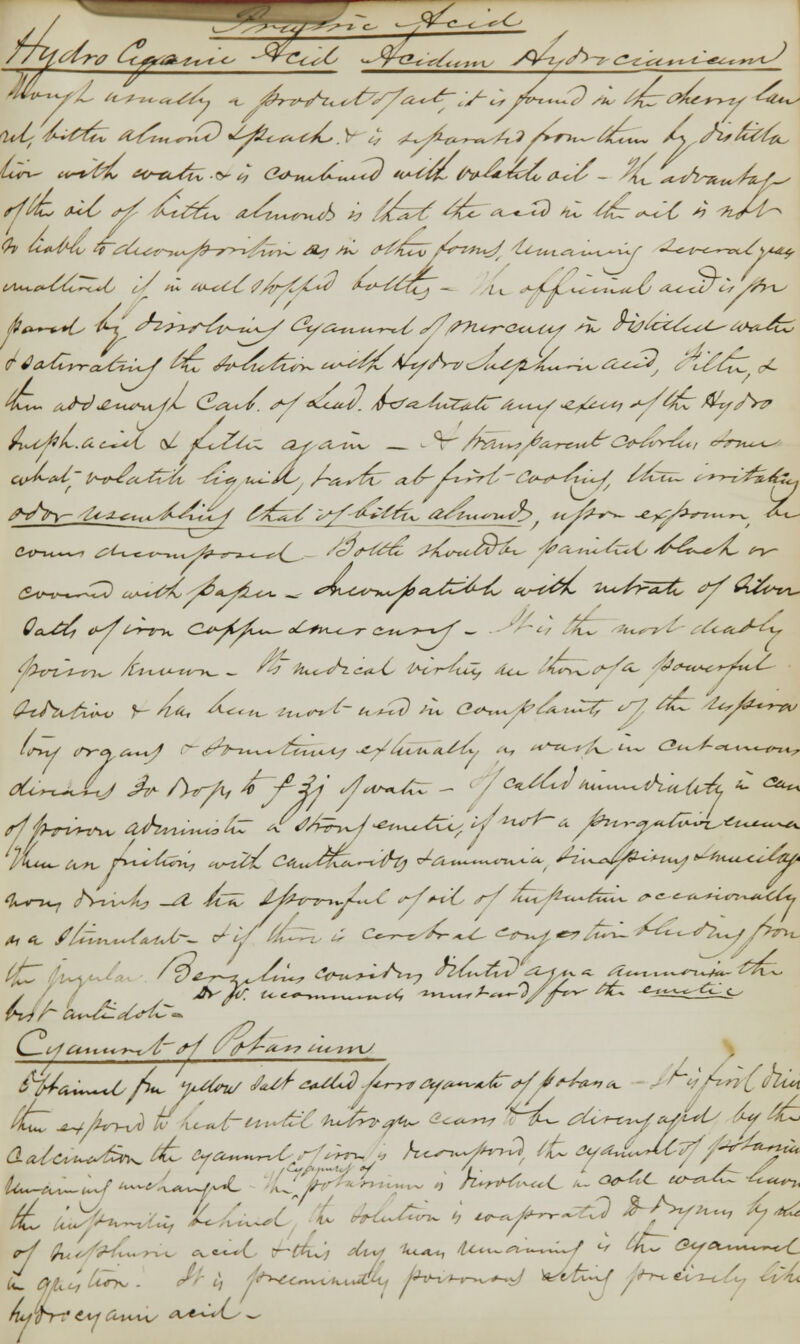 Prussic Acid
Hydro Cyanic Acid Acidum Hydrocianicum
Though usually a product of art, it is found in the cherry lau
rel, bitter almond & peach. & is separated from them by distilla
tion with water. & is combined with volatile oil - The advantage
of the oil of bitter almonds is that the acid in the oil is not
so liable to decomposition as in other forms, remaining several years
unaltered if in well stopped bottles - The officinal acid is pre
pared by dissolving Cyanuret of mercury in distilled water
& saturating the solution with Hydro Sulphuric acid, Filter, &
then add enough Carb. of Lead. to saturate any excess of the Hydro
sulph. acid & filter again - A transparent colorless, some
what, volatile liquid, taste at first cooling, then irritating
odor resembling that of bitter almonds, upon exposure, be
comes decomposed - Bottle should be painted black or
covered with paper - Incompatible with nitrate of Silver
Salts of iron copper & mercury - It is the most deadly
poison known - Its medical virtues are those of a powerful
sedative & has been most used in complaints of the respira
tory organs & sometimes externally as wash in cutaneous
diseases 30 drops to f ℥j of water - If called immediately in case
of poison administer a strong emetic, if not a purgative enema
Then use frictions with cantharides & ammonia, sinapisms & mucilagi
nous drinks - a tea spoonful of oil of turpentine occasionally
as a stimulant - & if there is cerebral congestion bleeding from
the jugular Berzelius considers diluted aqua ammonia the
best antidote - Dr W. recommends mustard for the emetic
Cyanuret of Potassium
Obtained from yellow salt called ferrocyanate of potassa - It is first dried
then exposed to heat until nitrogen ceases to be disengaged by the
Calcination the cyanuret of iron is decomposed, the cyanuret of potassium
remaining unchanged - The cyanuret of potassium is dissolved in cold water leaving
the impurities behind, the solution is evaporated to dryness by
of sulphuric acid & this dry mass remaining is the cyanuret
in question. It is preeminently poisonous acting precisely like
hydrocyanic acid -